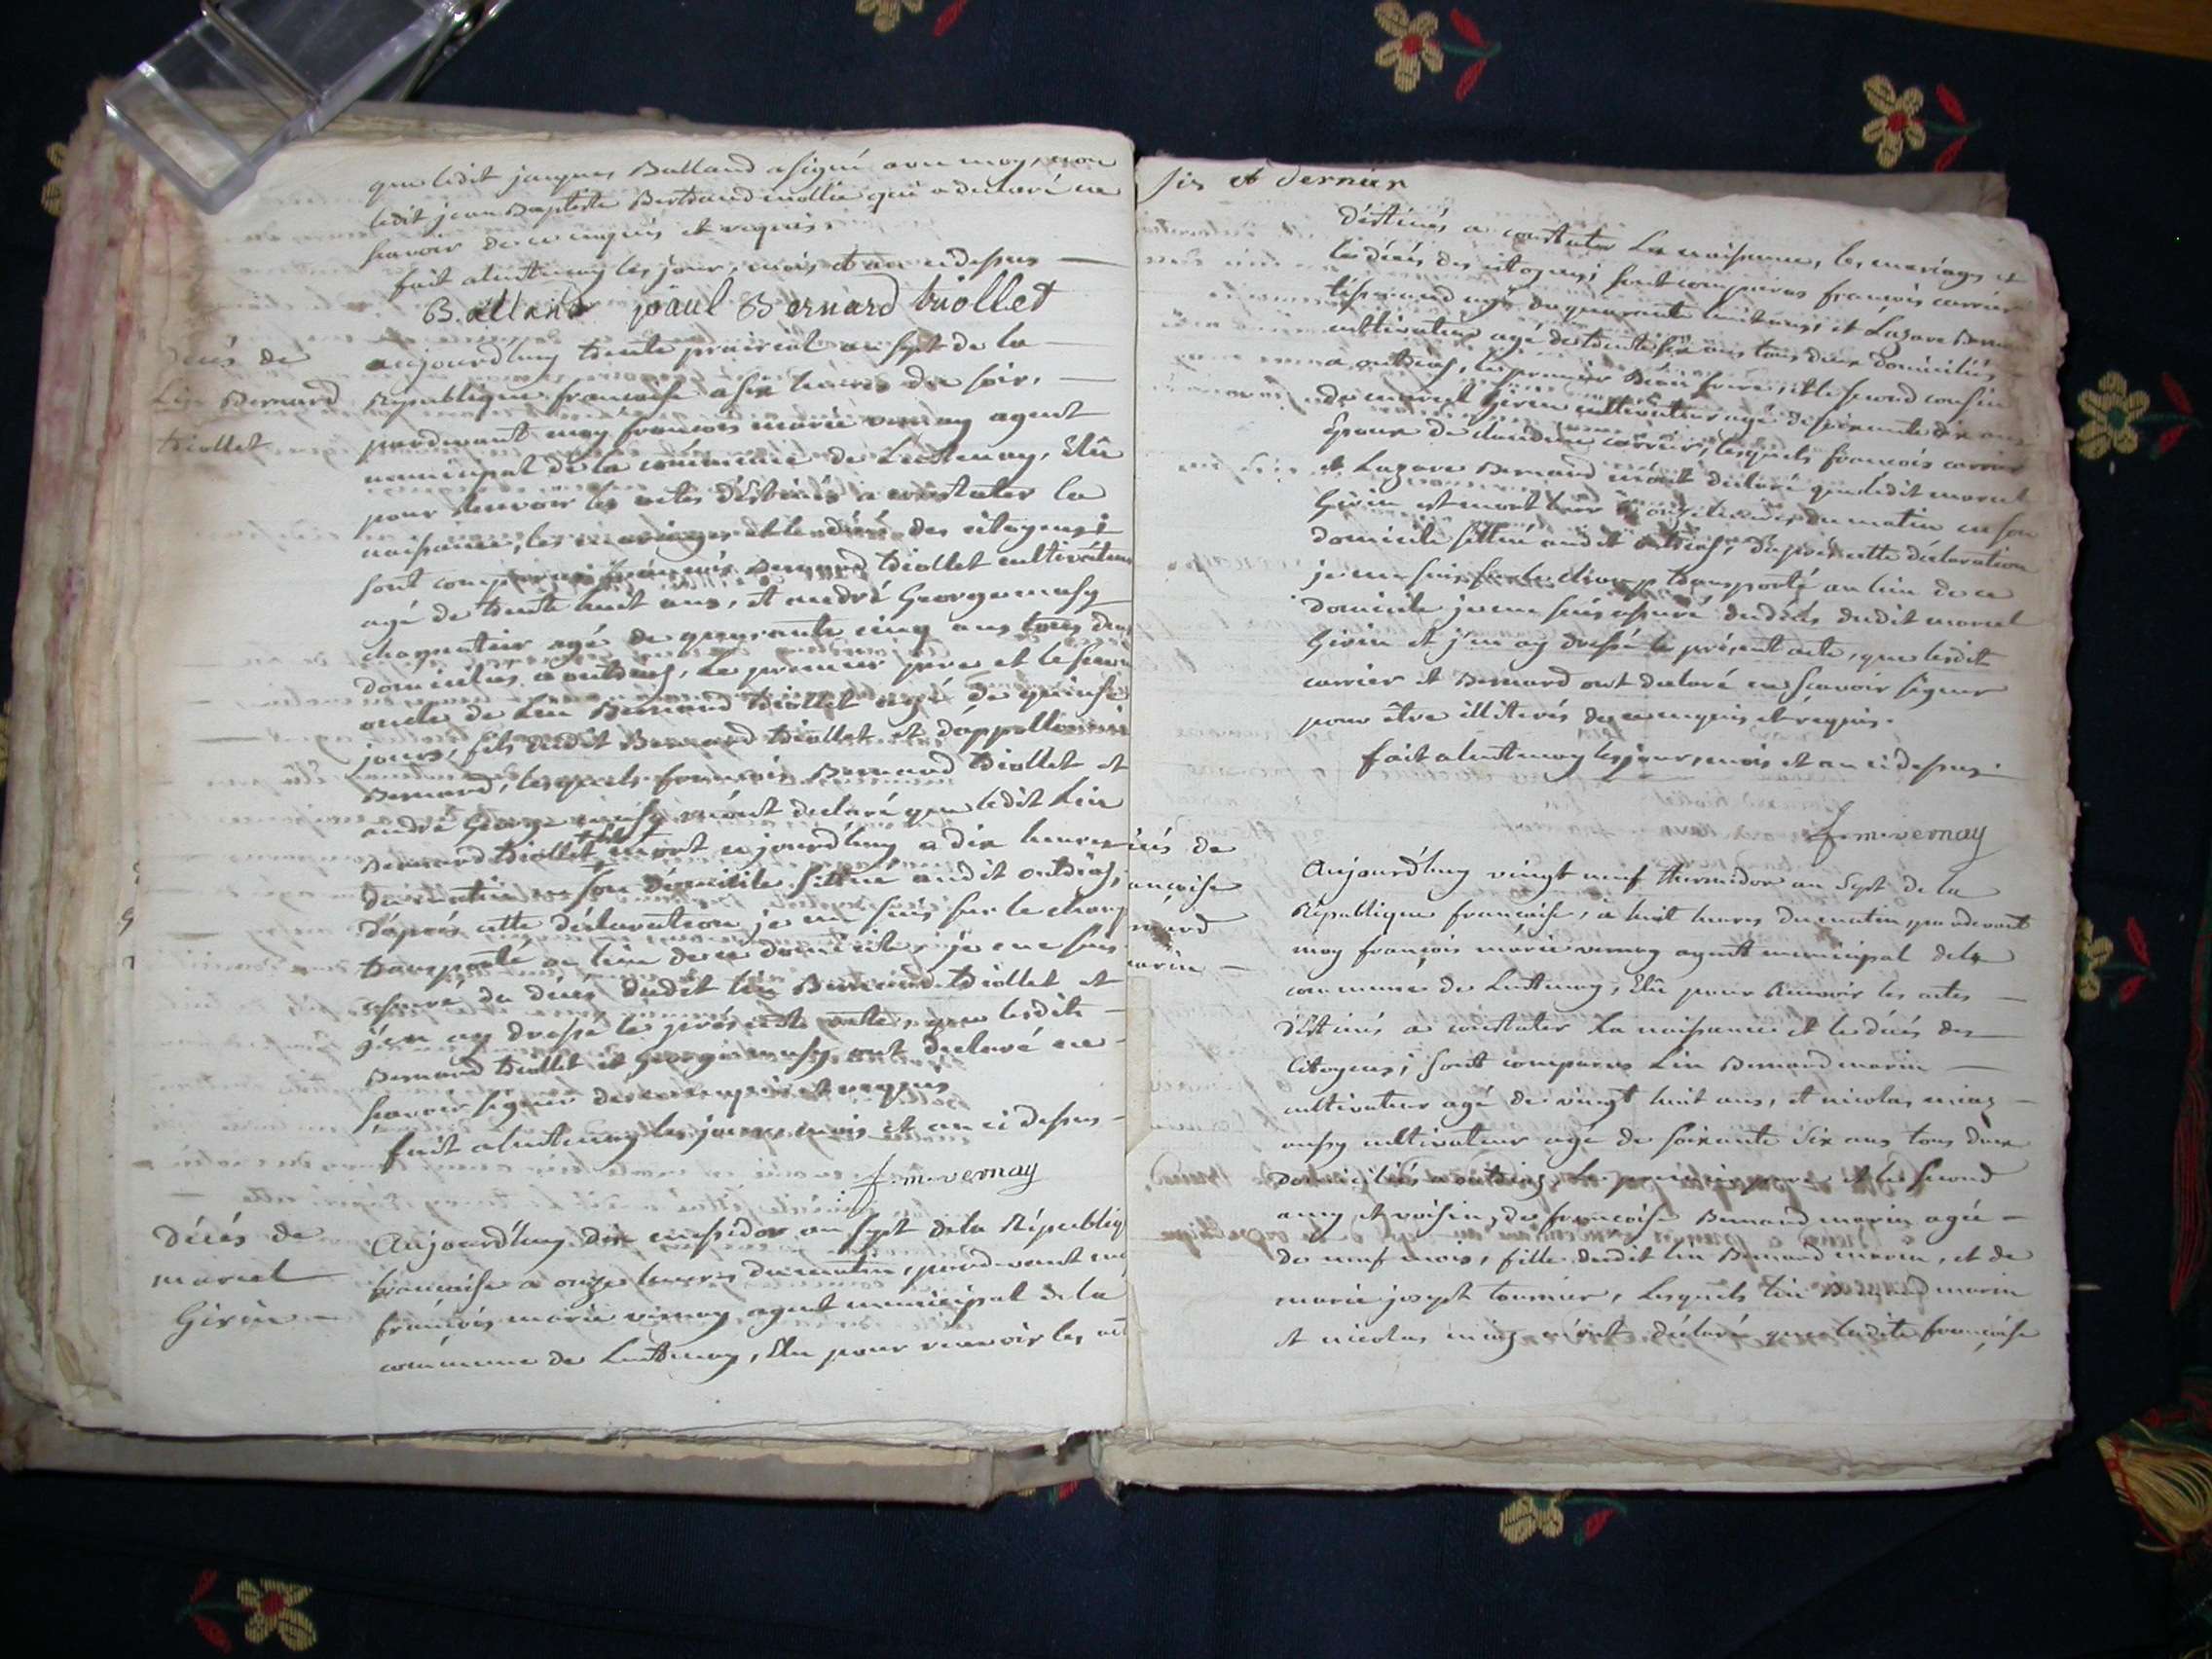 que ledit jacques Balland a signé avec moy, non
ledit jean Baptiste Bertrand mollie qui a déclaré ne
scavoir de ce enquis et requis.
fait a lentenay les jour, mois et an cidessus
Balland paul Bernard triollet
décès de
Lin Bernard
triollet
aujourdhuy trente prairial an sept de la
République francoise a six heures du soir,
pardevant moy francois marie vernay agent
municipal de la commune de Lentenay, Elû
pour recevoir les actes déstinés a constater la
naissance, les mariages et le décés des citoyens;
sont comparus françois Bernard triollet cultivateur
agé de trente huit ans, et andré George musy
charpentier agé de quarante cinq ans tous deux
domiciliés a outriaz, le premier pere et le second
oncle de Lin Bernard triollet agé de quinse
jours, fils dudit Bernard triollet et d'appollonie
Bernard, lesquels francois Bernard triollet et
andré George musy m'ont declaré que ledit Lin
Bernard triollet est mort aujourdhuy a dix heures
du matin en son domicile sittué audit outriaz,
d'aprés cette déclaration je me suis sur le champ
transporté au lieu de ce domicile, je me suis
assuré du décés dudit Lin Bernard triollet et
j'en ay dressé le présent acte, que lesdits
Bernard triollet et George musy ont declaré ne
scavoir signer de ce enquis et requis
fait a lentenay les jour, mois et an ci dessus
f. m. vernay
Décés de
marcel
Girin
Aujourdhuy dix messidor an sept de la Républiq
francaise a onze heures du matin, pardevant moy
françois marie vernay agent municipal de la
commune de Lentenay, Elu pour recevoir les act
six et dernier
déstinés a constater La naissance, les mariages et
les décés des citoyens; sont comparus françois carrier
tisserand agé de quarante huit ans, et Lazare Bernard
cultivateur agé de trente six ans tous deux domiciliés
a outriaz, le premier Beau frere, et le second cousin
de marcel Girin cultivateur agé de soixante dix ans
Epoux de claudine carrier, lesquels françois carrier
et Lazare Bernard m'ont declaré que ledit marcel
Girin est mort hier a onze heures du matin en son
domicile sittué audit outriaz, d'aprés cette déclaration
je me suis sur le champ transporté au lieu de ce
domicile je me suis assuré du décés dudit marcel
Girin et j'en ay dressé le présent acte, que lesdits
carrier et Bernard ont declaré ne scavoir signer
pour être illiterés de ce enquis et requis.
fait a lentenay les jour, mois et an ci dessus
f. m. vernay
cés de
ancoise
nard
marin
Aujourdhuy vingt neuf thermidor an Sept de la
République francaise, a huit heures du matin, pardevant
moy françois marie vernay agent municipal de la
commune de Lentenay, Elû pour Recevoir les actes
déstinés a constater la naissance et le décés des
Citoyens; sont comparus Lin Bernard marin
cultivateur agé de vingt huit ans, et nicolas
aussy cultivateur agé de soixante six ans tous deux
domiciliés a outriaz, le premier pere et le second
amy et voisin, de francoise Bernard marin agée
de neuf mois, fille dudit Lin Bernard marin, et de
marie joseph tournier, Lesquels Lin Bernard marin
et nicolas m'ont déclaré que ladite francoise